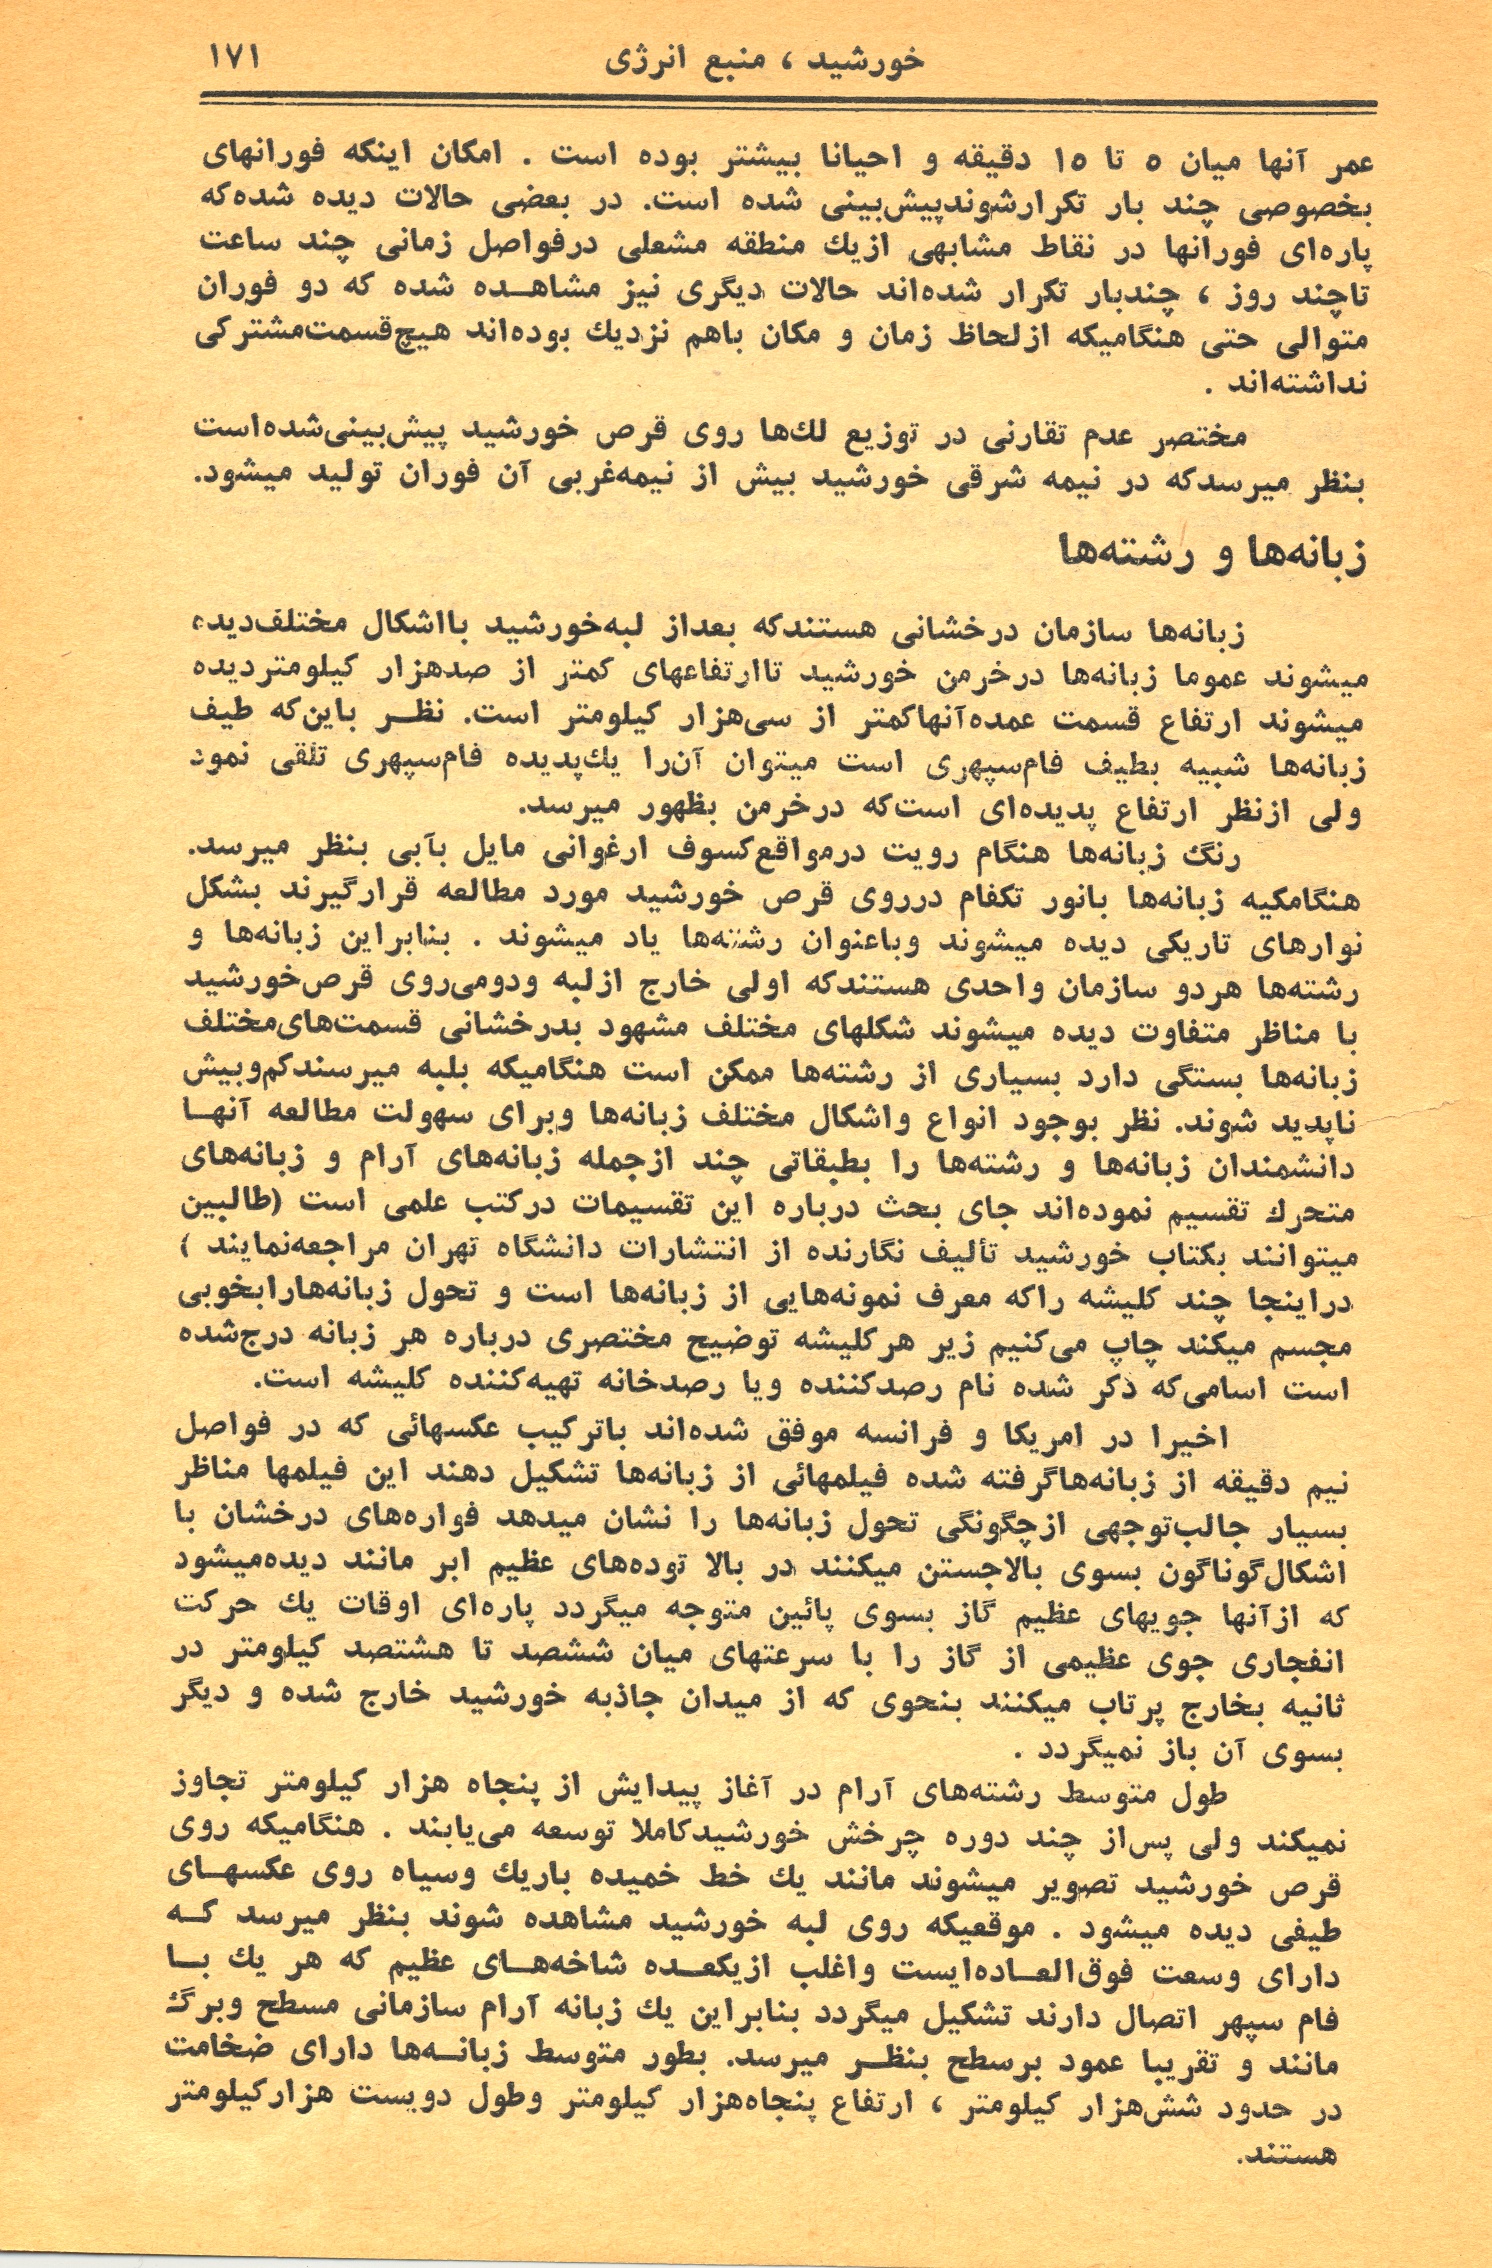 خورشید ، منبع انرژی ۱۷۱
عمر آنها میان ۵ تا ۱۵ دقیقه و احیانا بیشتر بوده است . امکان اینکه فورانهای
بخصوصی چند بار تکرارشوندپیش‌بینی شده است. در بعضی حالات دیده شده‌که
پاره‌ای فورانها در نقاط مشابهی ازیك منطقه مشعلی درفواصل زمانی چند ساعت
تاچند روز ، چندبار تکرار شده‌اند حالات دیگری نیز مشاهـده شده که دو فوران
متوالی حتی هنگامیکه ازلحاظ زمان و مکان باهم نزدیك بوده‌اند هیچ‌قسمت‌مشترکی
نداشته‌اند .
مختصر عدم تقارنی در توزیع لك‌ها روی قرص خورشید پیش‌بینی‌شده‌است
بنظر میرسدکه در نیمه شرقی خورشید بیش از نیمه‌غربی آن فوران تولید میشود.
زبانه‌ها و رشته‌ها
زبانه‌ها سازمان درخشانی هستندکه بعداز لبه‌خورشید بااشکال مختلف‌دیده
میشوند عموما زبانه‌ها درخرمن خورشید تاارتفاعهای کمتر از صدهزار کیلومتردیده
میشوند ارتفاع قسمت عمده‌آنهاکمتر از سی‌هزار کیلومتر است. نظـر باین‌که طیف
زبانه‌ها شبیه بطیف فام‌سپهری است میتوان آن‌را یك‌پدیده فام‌سپهری تلقی نمود
ولی ازنظر ارتفاع پدیده‌ای است‌که درخرمن بظهور میرسد.
رنگ زبانه‌ها هنگام رویت درمواقع‌کسوف ارغوانی مایل بآبی بنظر میرسد.
هنگامکیه زبانه‌ها بانور تکفام درروی قرص خورشید مورد مطالعه قرارگیرند بشکل
نوارهای تاریکی دیده میشوند وباعنوان رشته‌ها یاد میشوند . بنابراین زبانه‌ها و
رشته‌ها هردو سازمان واحدی هستندکه اولی خارج ازلبه ودومی‌روی قرص‌خورشید
با مناظر متفاوت دیده میشوند شکلهای مختلف مشهود بدرخشانی قسمت‌های‌مختلف
زبانه‌ها بستگی دارد بسیاری از رشته‌ها ممکن است هنگامیکه بلبه میرسندکم‌وبیش
ناپدید شوند. نظر بوجود انواع واشکال مختلف زبانه‌ها وبرای سهولت مطالعه آنهـا
دانشمندان زبانه‌ها و رشته‌ها را بطبقاتی چند ازجمله زبانه‌های آرام و زبانه‌های
متحرك تقسیم نموده‌اند جای بحث درباره این تقسیمات درکتب علمی است (طالبین
میتوانند بکتاب خورشید تألیف نگارنده از انتشارات دانشگاه تهران مراجعه‌نمایند )
دراینجا چند کلیشه راکه معرف نمونه‌هایی از زبانه‌ها است و تحول زبانه‌هارابخوبی
مجسم میکند چاپ می‌کنیم زیر هرکلیشه توضیح مختصری درباره هر زبانه درج‌شده
است اسامی‌که ذکر شده نام رصدکننده ویا رصدخانه تهیه‌کننده کلیشه است.
اخیرا در امریکا و فرانسه موفق شده‌اند باترکیب عکسهائی که در فواصل
نیم دقیقه از زبانه‌هاگرفته شده فیلمهائی از زبانه‌ها تشکیل دهند این فیلمها مناظر
بسیار جالب‌توجهی ازچگونگی تحول زبانه‌ها را نشان میدهد فواره‌های درخشان با
اشکال‌گوناگون بسوی بالاجستن میکنند در بالا توده‌های عظیم ابر مانند دیده‌میشود
که ازآنها جویهای عظیم گاز بسوی پائین متوجه میگردد پاره‌ای اوقات یك حرکت
انفجاری جوی عظیمی از گاز را با سرعتهای میان ششصد تا هشتصد کیلومتر در
ثانیه بخارج پرتاب میکنند بنحوی که از میدان جاذبه خورشید خارج شده و دیگر
بسوی آن باز نمیگردد .
طول متوسط رشته‌های آرام در آغاز پیدایش از پنجاه هزار کیلومتر تجاوز
نمیکند ولی پس‌از چند دوره چرخش خورشیدکاملا توسعه می‌یابند . هنگامیکه روی
قرص خورشید تصویر میشوند مانند یك خط خمیده باریك وسیاه روی عکسهـای
طیفی دیده میشود . موقعیکه روی لبه خورشید مشاهده شوند بنظر میرسد کـه
دارای وسعت فوق‌العـاده‌ایست واغلب ازیکعـده شاخه‌هـای عظیم که هر یك بـا
فام سپهر اتصال دارند تشکیل میگردد بنابراین یك زبانه آرام سازمانی مسطح وبرگ
مانند و تقریبا عمود برسطح بنظـر میرسد. بطور متوسط زبانـه‌ها دارای ضخامت
در حدود شش‌هزار کیلومتر ، ارتفاع پنجاه‌هزار کیلومتر وطول دویست هزارکیلومتر
هستند.